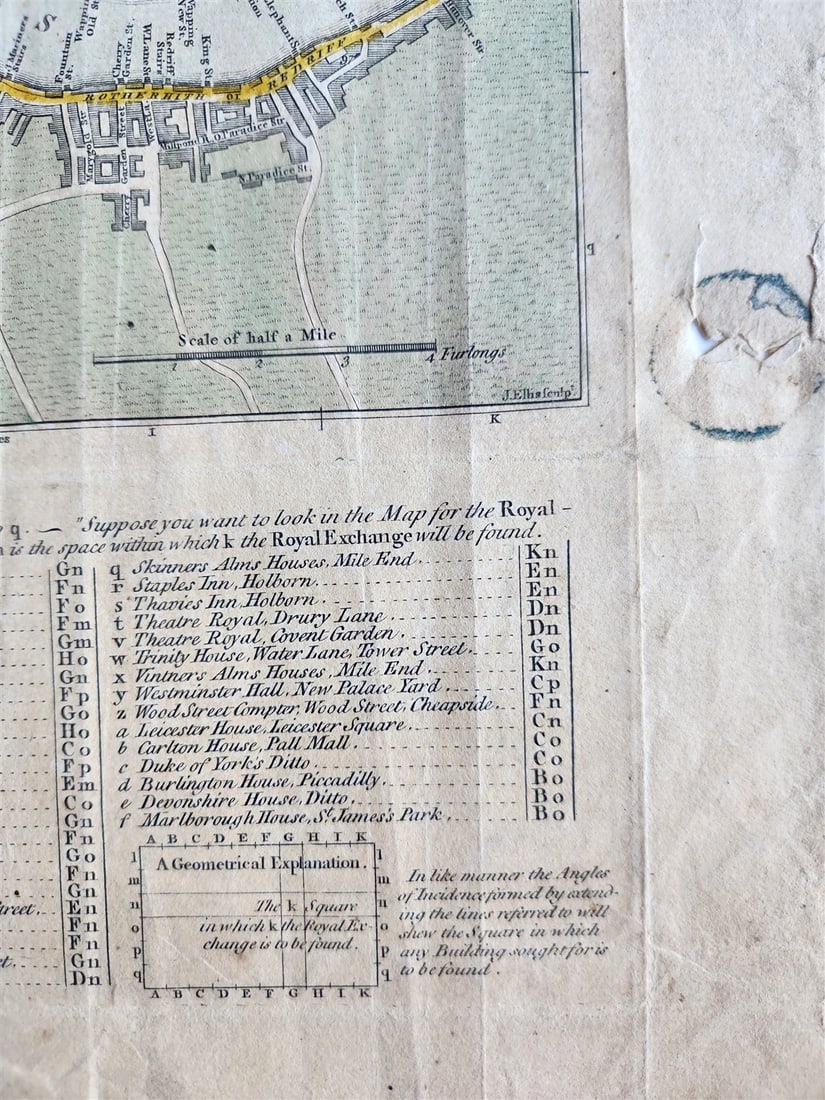 S
Mariners Stairs
Fountain St.
Wapping Old St.
Cherry Garden St.
W. Lane St.
Redriff Stairs
Wapping New St.
King St.
Elephant
Hanover Str.
ROTHERHITH or REDRIFF
97
Marygold Str.
Garden Street
Millpond R. O. Paradice Str.
N. Paradice St.
Cherry
q
Scale of half a Mile
1 2 3 4 Furlongs
J. Ellis sculp.t
I K
q. — "Suppose you want to look in the Map for the Royal –
is the space within which k the Royal Exchange will be found.
Gn q Skinners Alms Houses, Mile End Kn
Fn r Staples Inn, Holborn En
Fo s Thavies Inn, Holborn En
Fm t Theatre Royal, Drury Lane Dn
Gm v Theatre Royal, Covent Garden Dn
Ho w Trinity House, Water Lane, Tower Street Go
Gn x Vintners Alms Houses, Mile End Kn
Fp y Westminster Hall, New Palace Yard Cp
Go z Wood Street Compter, Wood Street, Cheapside Fn
Ho a Leicester House, Leicester Square Cn
Co b Carlton House, Pall Mall Co
Fp c Duke of York's Ditto Co
Em d Burlington House, Piccadilly Bo
Co e Devonshire House, Ditto Bo
Gn f Marlborough House, St. James's Park Bo
Fn
Go
Fn
Gn
treet. En
Fn
Fn
t. Gn
Dn
A B C D E F G H I K
l m n o p q
A Geometrical Explanation.
The k Square
in which k the Royal Ex-
change is to be found.
l m n o p q
A B C D E F G H I K
In like manner the Angles
of Incidence formed by extend-
ing the lines referred to will
shew the Square in which
any Building sought for is
to be found.